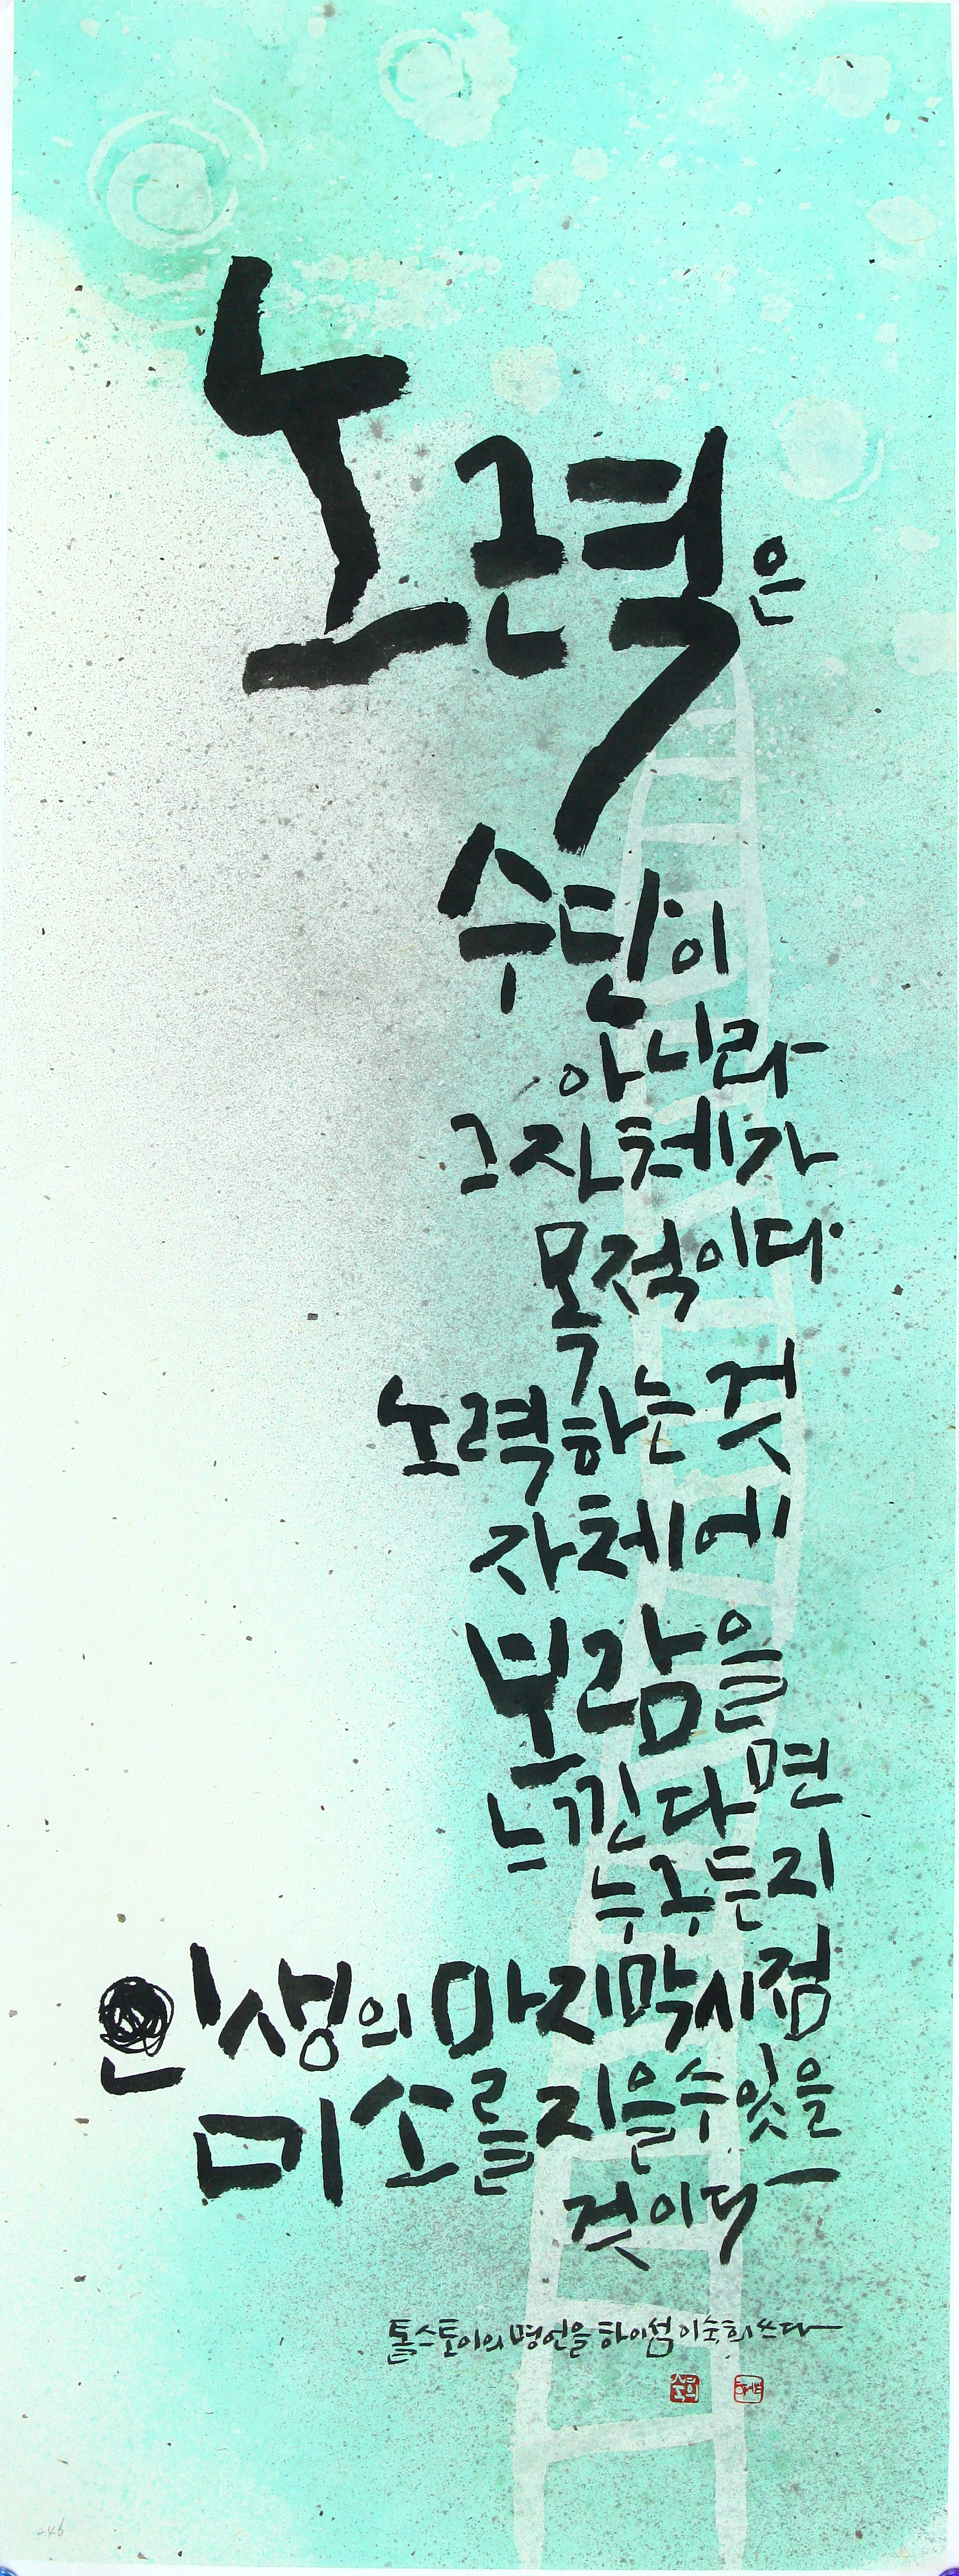 노력은
수단이
아니라
그 자체가
목적이다.
노력하는 것
자체에
보람을
느낀다면
누구든지
인생의 마지막 시점
미소를 지을 수 있을
것이다
톨스토이의 명언을 하이섬 이숙희 쓰다